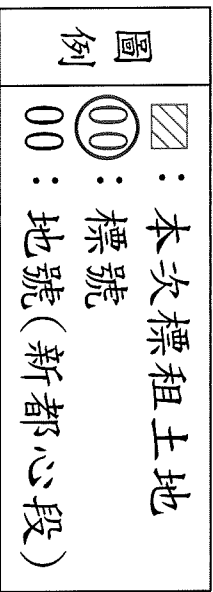 圖例
：本次標租土地
00：標號
00：地號(新都心段)